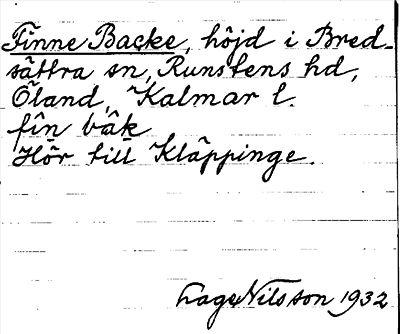 Finne Backe, höjd i Bred-
sättra sn, Runstens hd,
Öland, Kalmar l.
fin bäk
Hör till Kläppinge.
Lage Nilsson 1932